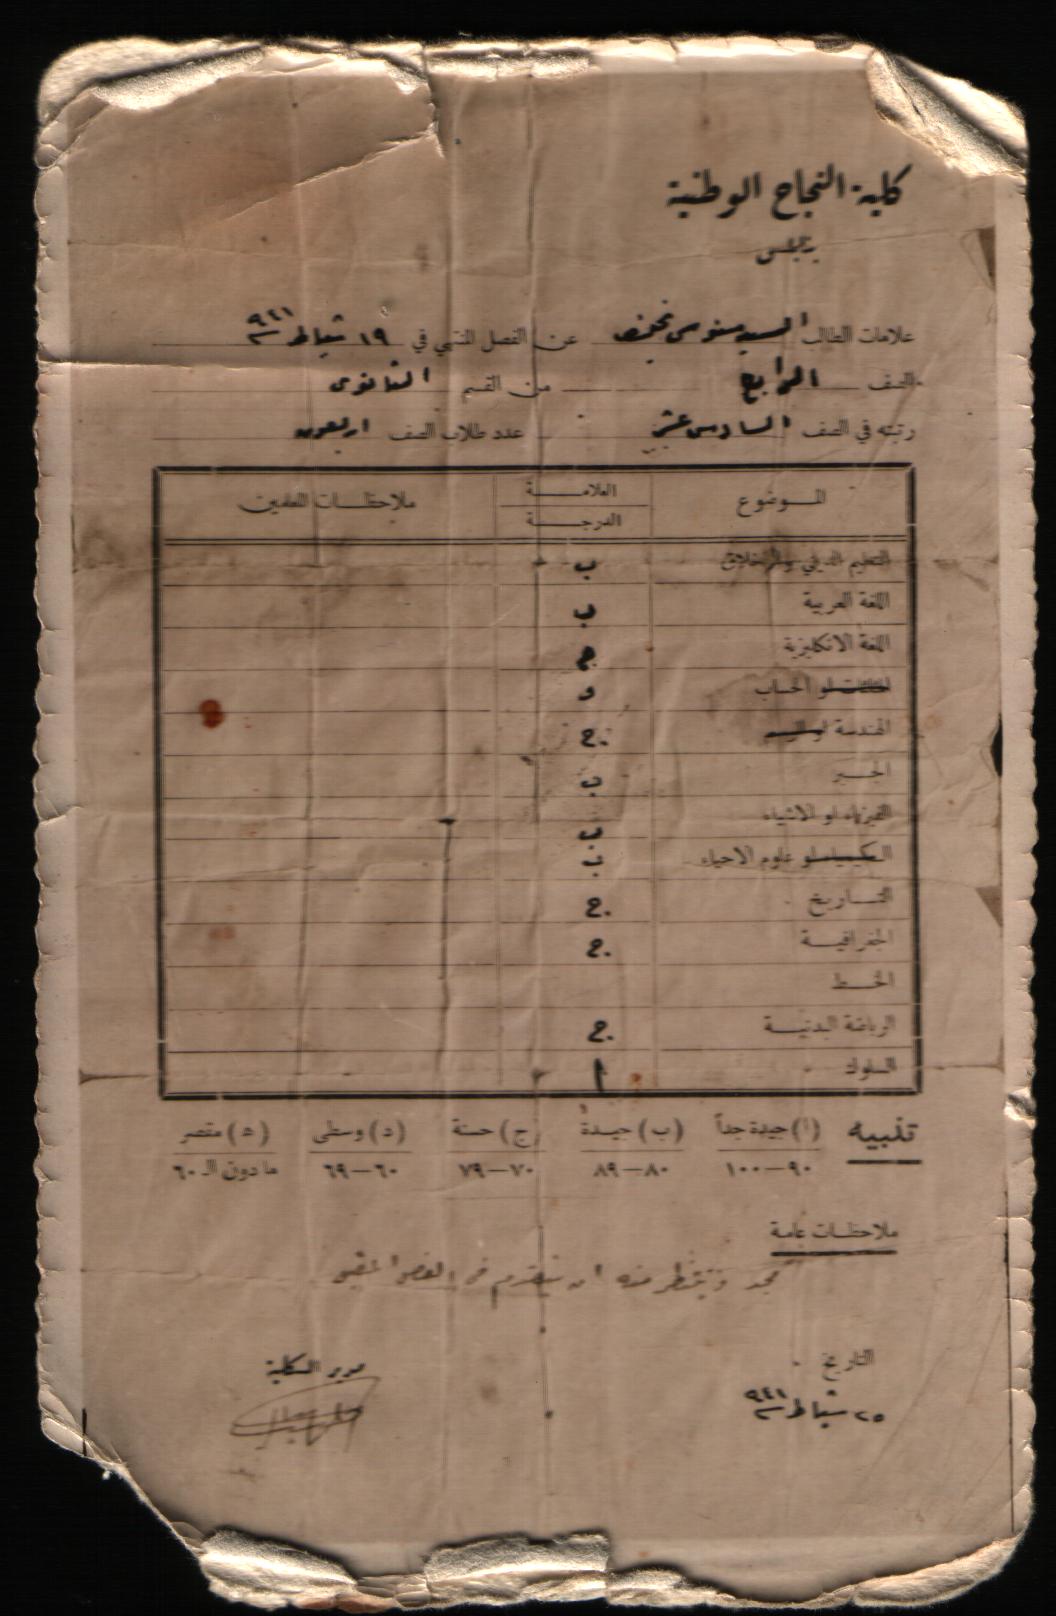 كلية النجاح الوطنية
بنابلس
علامات الطالب السيد عن الفصل المنتهي في ١٩ شباط سنة ٩٤١
الصف الرابع من القسم الثانوي
رتبته في الصف السادس عشر عدد طلاب الصف اربعون
الموضوع العلامة الدرجة ملاحظات المعلمين
التعليم الديني والاخلاق ب
اللغة العربية ب
اللغة الانكليزية ج
المثلثات او الحساب د
الهندسة او ج
الجبر ب
الفيزياء او الاشياء ب
الكيمياء او علوم الاحياء ب
التاريخ ج
الجغرافية ج
الخط
الرياضة البدنية ج
السلوك ا
تنبيه (ا) جيدة جداً (ب) جيدة (ج) حسنة (د) وسطى (ه) مقصر
٩٠—١٠٠ ٨٠—٨٩ ٧٠—٧٩ ٦٠—٦٩ ما دون الـ ٦٠
ملاحظات عامة
مجد وينتظر منه ان يتقدم في الفصل المقبل
التاريخ مدير الكلية
٢٥ شباط سنة ٩٤١